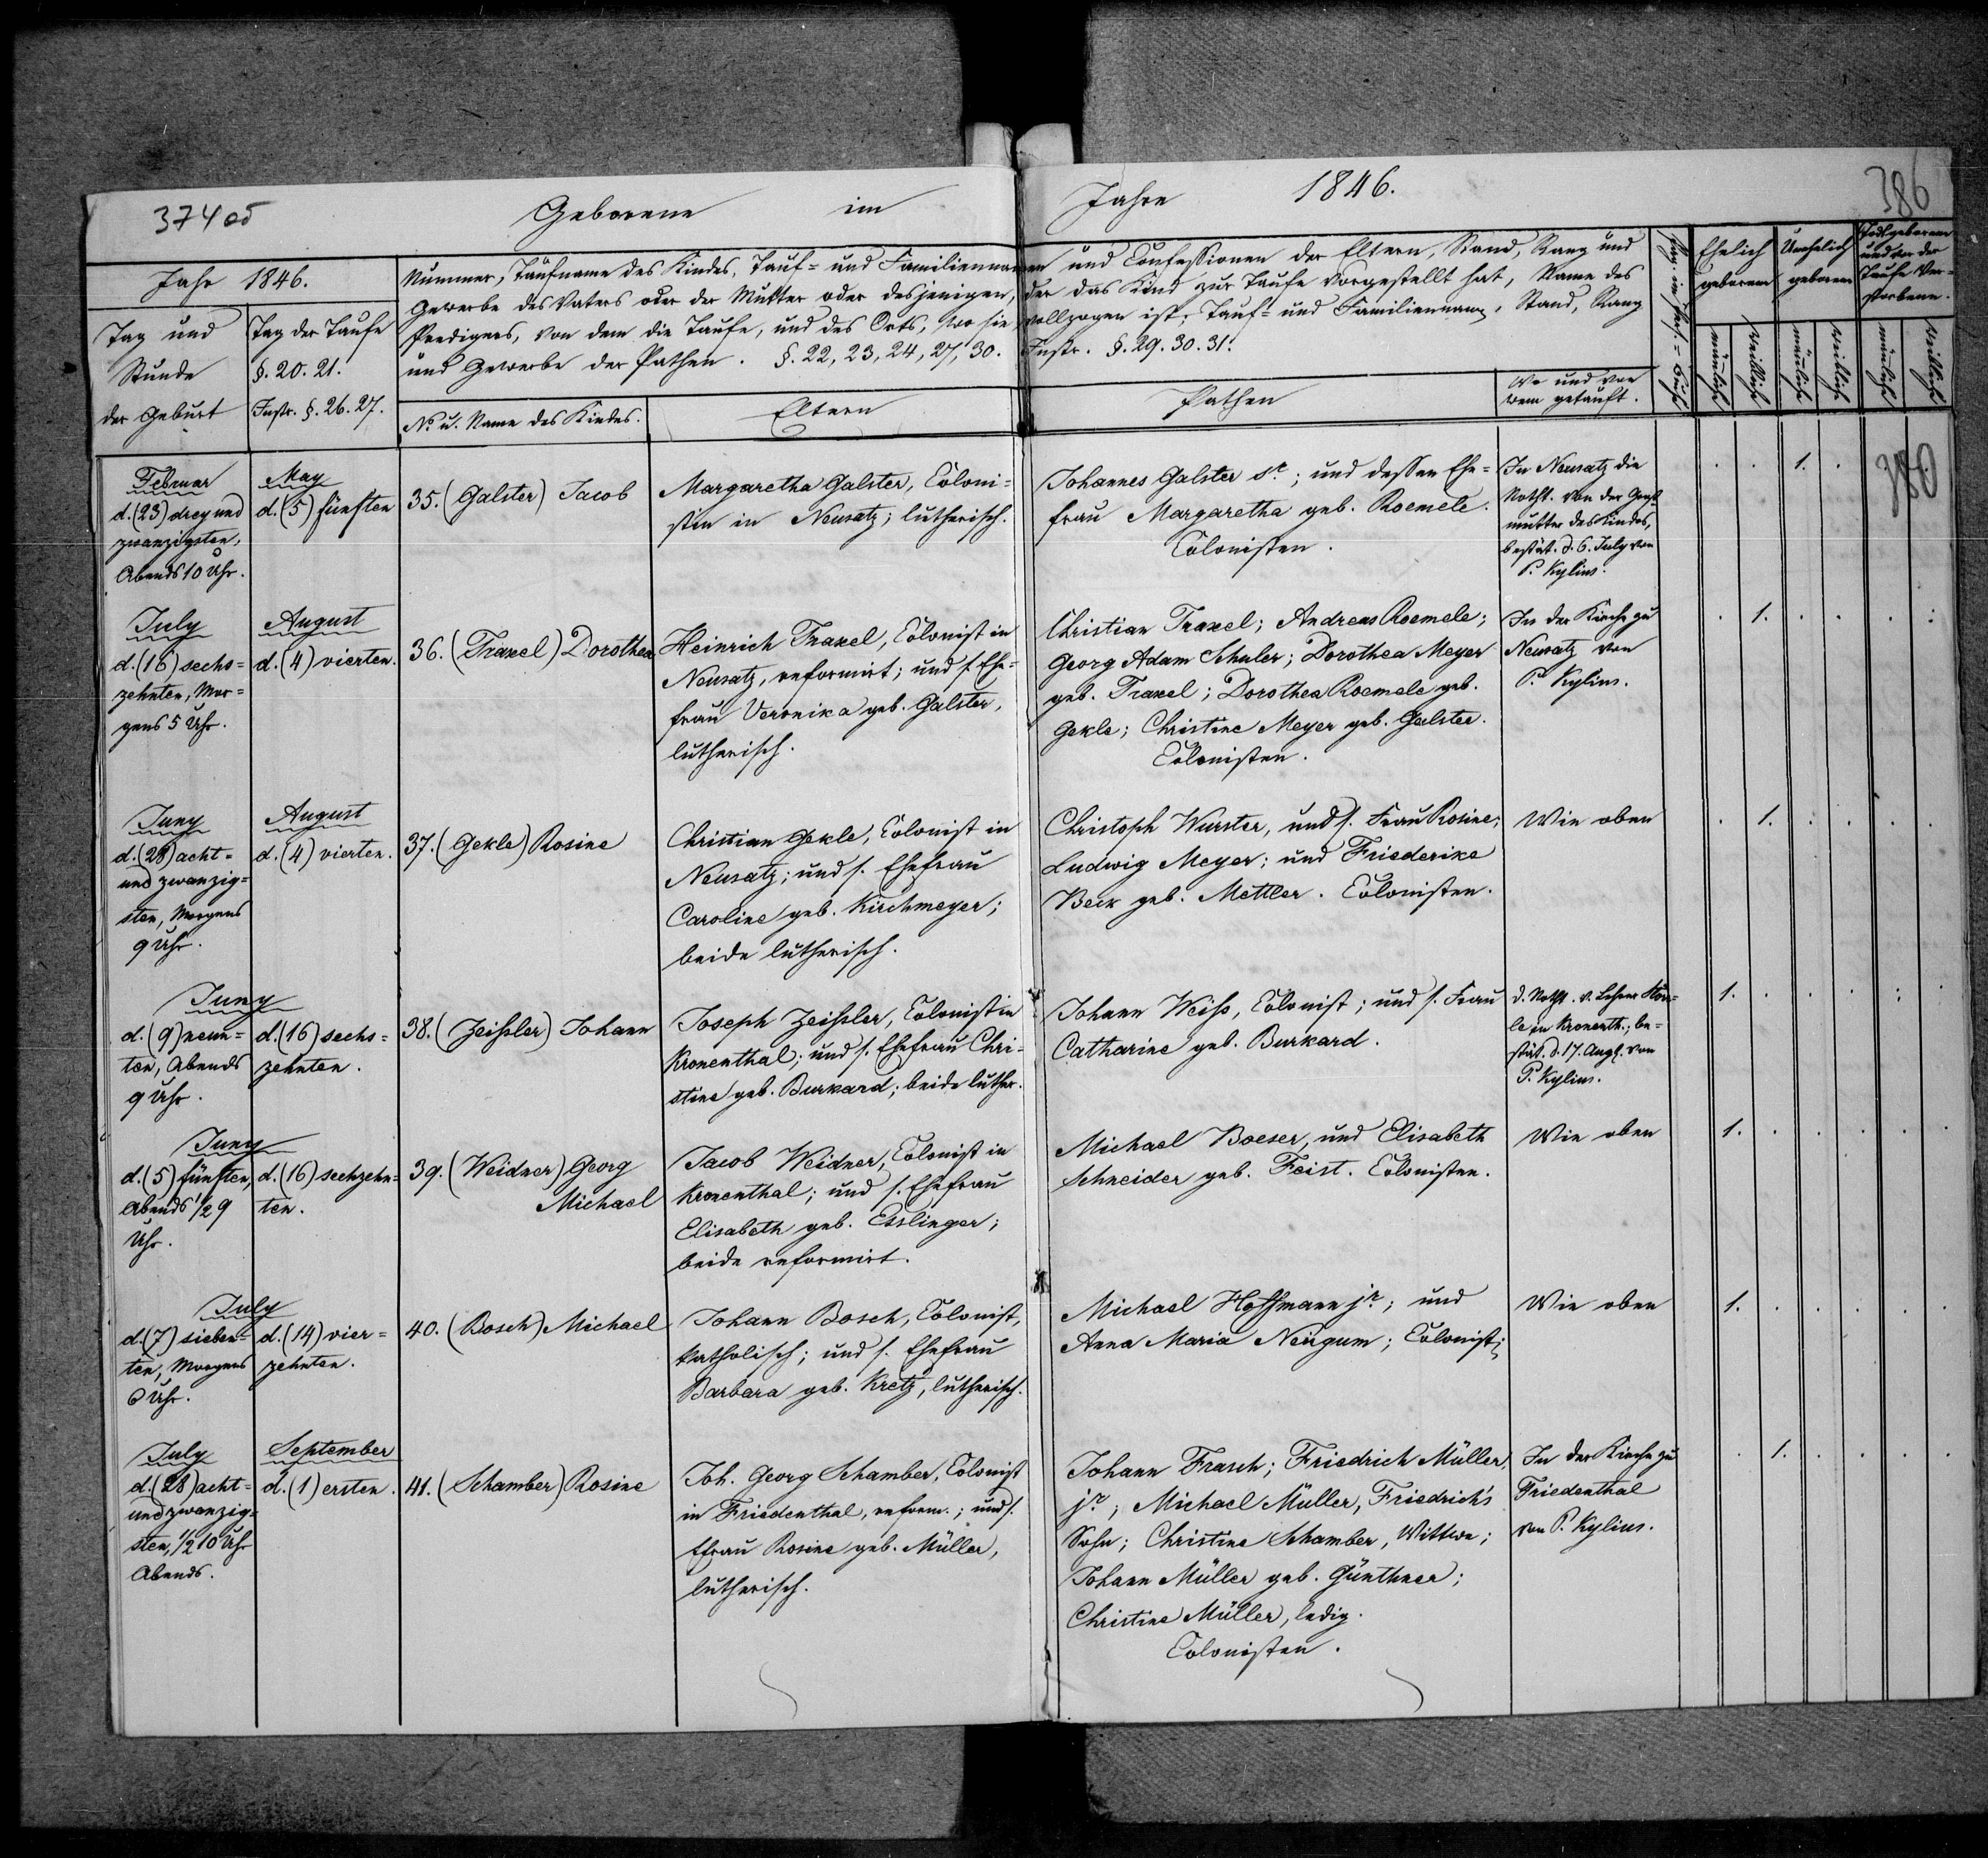 374 об
Geborene im Jahre 1846.
386
Jahr 1846.
Tag und
Stunde
der Geburt
Tag der Taufe
§. 20. 21.
Instr. §. 26. 27.
Nummer, Taufname des Kindes, Tauf- und Familiennamen und Confessionen der Eltern, Stand, Rang und
Gewerbe des Vaters oder der Mutter oder desjenigen, der das Kind zur Taufe vorgestellt hat, Name des
Predigers, von dem die Taufe, und des Orts, wo sie vollzogen ist; Tauf- und Familienname, Stand, Rang
und Gewerbe der Pathen. §. 22, 23, 24, 27, 30. Instr. §. 29. 30. 31.
No. u. Name des Kindes.
Eltern
Pathen
Wo und von
wem getauft.
Ehelich
geboren
Unehelich
geboren
Todtgeborene
und vor der
Taufe Ver-
storbene.
männlich
weiblich
männlich
weiblich
männlich
weiblich
Februar
d. (23) drey und
zwanzigsten,
Abends 10 Uhr.
May
d. (5) fünften
35. (Galster) Jacob
Margaretha Galster, Coloni-
stin in Neusatz; lutherisch.
Johannes Galster sr.; und dessen Ehe-
frau Margaretha geb. Roemele.
Colonisten.
In Neusatz die
Notht. von der Groß-
mutter des Kindes,
bestät. d. 6. July von
P. Kylius.
1.
380
July
d. (16) sechs-
zehnten, Mor-
gens 5 Uhr.
August
d. (4) vierten.
36. (Traxel) Dorothea
Heinrich Traxel, Colonist in
Neusatz, reformirt; und s. Ehe-
frau Veronika geb. Galster,
lutherisch.
Christian Traxel; Andreas Roemele;
Georg Adam Schuler; Dorothea Meyer
geb. Traxel; Dorothea Roemele geb.
Gekle; Christine Meyer geb. Galster.
Colonisten.
In der Kirche zu
Neusatz von
P. Kylius.
1.
Juny
d. (28) acht-
und zwanzig-
sten, Morgens
9 Uhr.
August
d. (4) vierten.
37. (Gekle) Rosine
Christian Gekle, Colonist in
Neusatz; und s. Ehefrau
Caroline geb. Kirchmeyer;
beide lutherisch.
Christoph Wurster, und s. Frau Rosine;
Ludwig Meyer; und Friederike
Beck geb. Mettler. Colonisten.
Wie oben
1.
Juny
d. (9) neun-
ten, Abends
9 Uhr.
d. (16) sechs-
zehnten.
38. (Zeissler) Johann
Joseph Zeissler, Colonist in
Kronenthal; und s. Ehefrau Chri-
stine geb. Burkard; beide luther.
Johann Weiss, Colonist; und s. Frau
Catharine geb. Burkard.
d. Notht. v. Lehrer
le in Kronenth.; be-
stät. d. 17. Augt. von
P. Kylius.
1.
Juny
d. (5) fünften,
Abends 1/2 9
Uhr.
d. (16) sechzehn-
ten.
39. (Weidner) Georg
Michael
Jacob Weidner, Colonist in
Kronenthal; und s. Ehefrau
Elisabeth geb. Esslinger;
beide reformirt.
Michael Boeser, und Elisabeth
Schneider geb. Feist. Colonisten.
Wie oben
1.
July
d. (7) sieben-
ten, Morgens
6 Uhr.
d. (14) vier-
zehnten.
40. (Bosch) Michael
Johann Bosch, Colonist,
katholisch; und s. Ehefrau
Barbara geb. Kretz, lutherisch.
Michael Hoffmann jr.; und
Anna Maria Neugum; Colonist;
Wie oben
1.
July
d. (28) acht-
und zwanzig-
sten, 1/2 10 Uhr
Abends.
September
d. (1) ersten.
41. (Schamber) Rosine
Joh. Georg Schamber, Colonist
in Friedenthal, reform.; und s.
Efrau Rosine geb. Müller,
lutherisch.
Johann Frasch; Friedrich Müller,
jr.; Michael Müller, Friedrich's
Sohn; Christine Schamber, Wittwe;
Johann Müller geb. Günthner;
Christine Müller, ledig.
Colonisten.
In der Kirche zu
Friedenthal
von P. Kylius.
1.